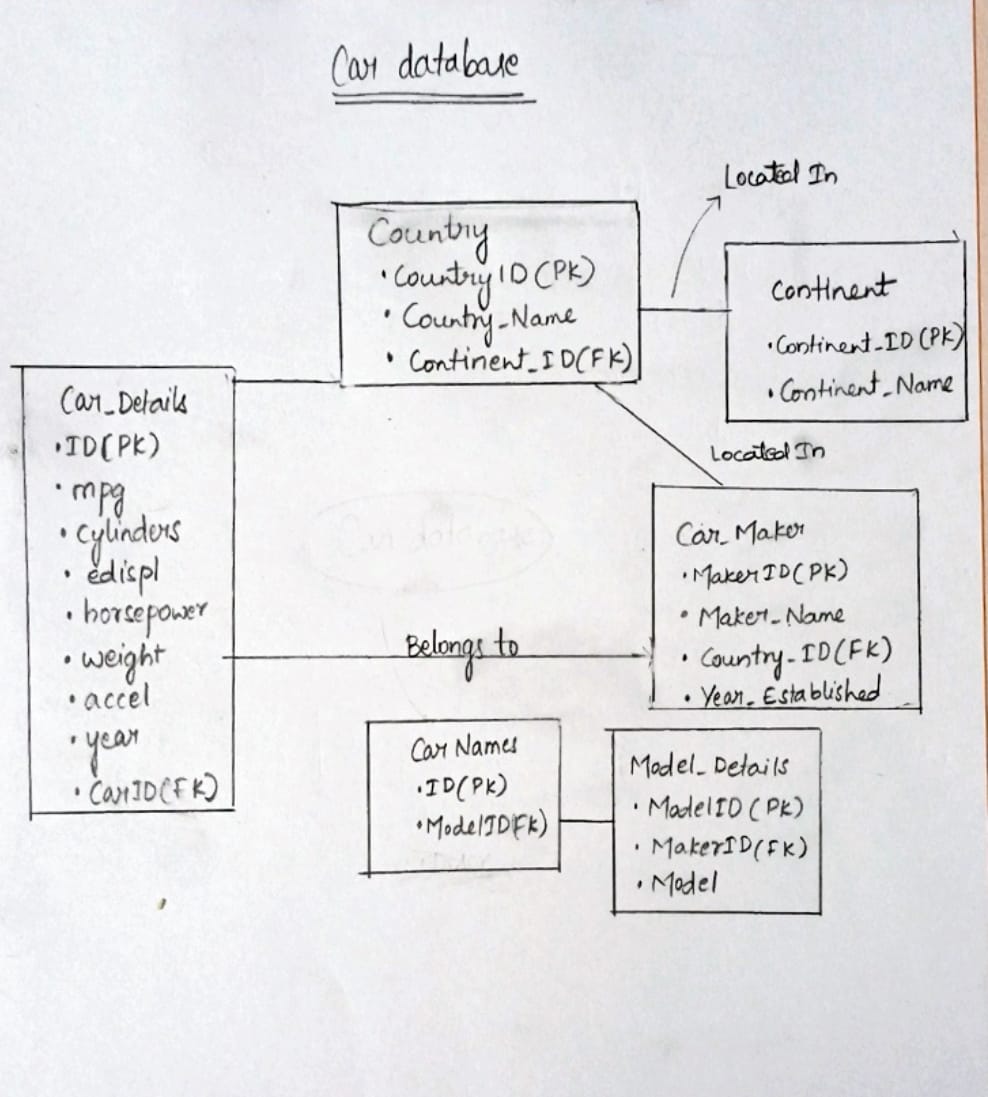 Car database
Located In
Country
• CountryID (PK)
• Country_Name
• Continent_ID(FK)
Continent
• Continent_ID (PK)
• Continent_Name
Located In
Car_Details
• ID(PK)
• mpg
• cylinders
• edispl
• horsepower
• weight
• accel
• year
• CarID(FK)
Belongs to
Car_Maker
• MakerID(PK)
• Maker_Name
• Country_ID(FK)
• Year_Established
Car Names
• ID(PK)
• ModelID(FK)
Model_Details
• ModelID (PK)
• MakerID(FK)
• Model